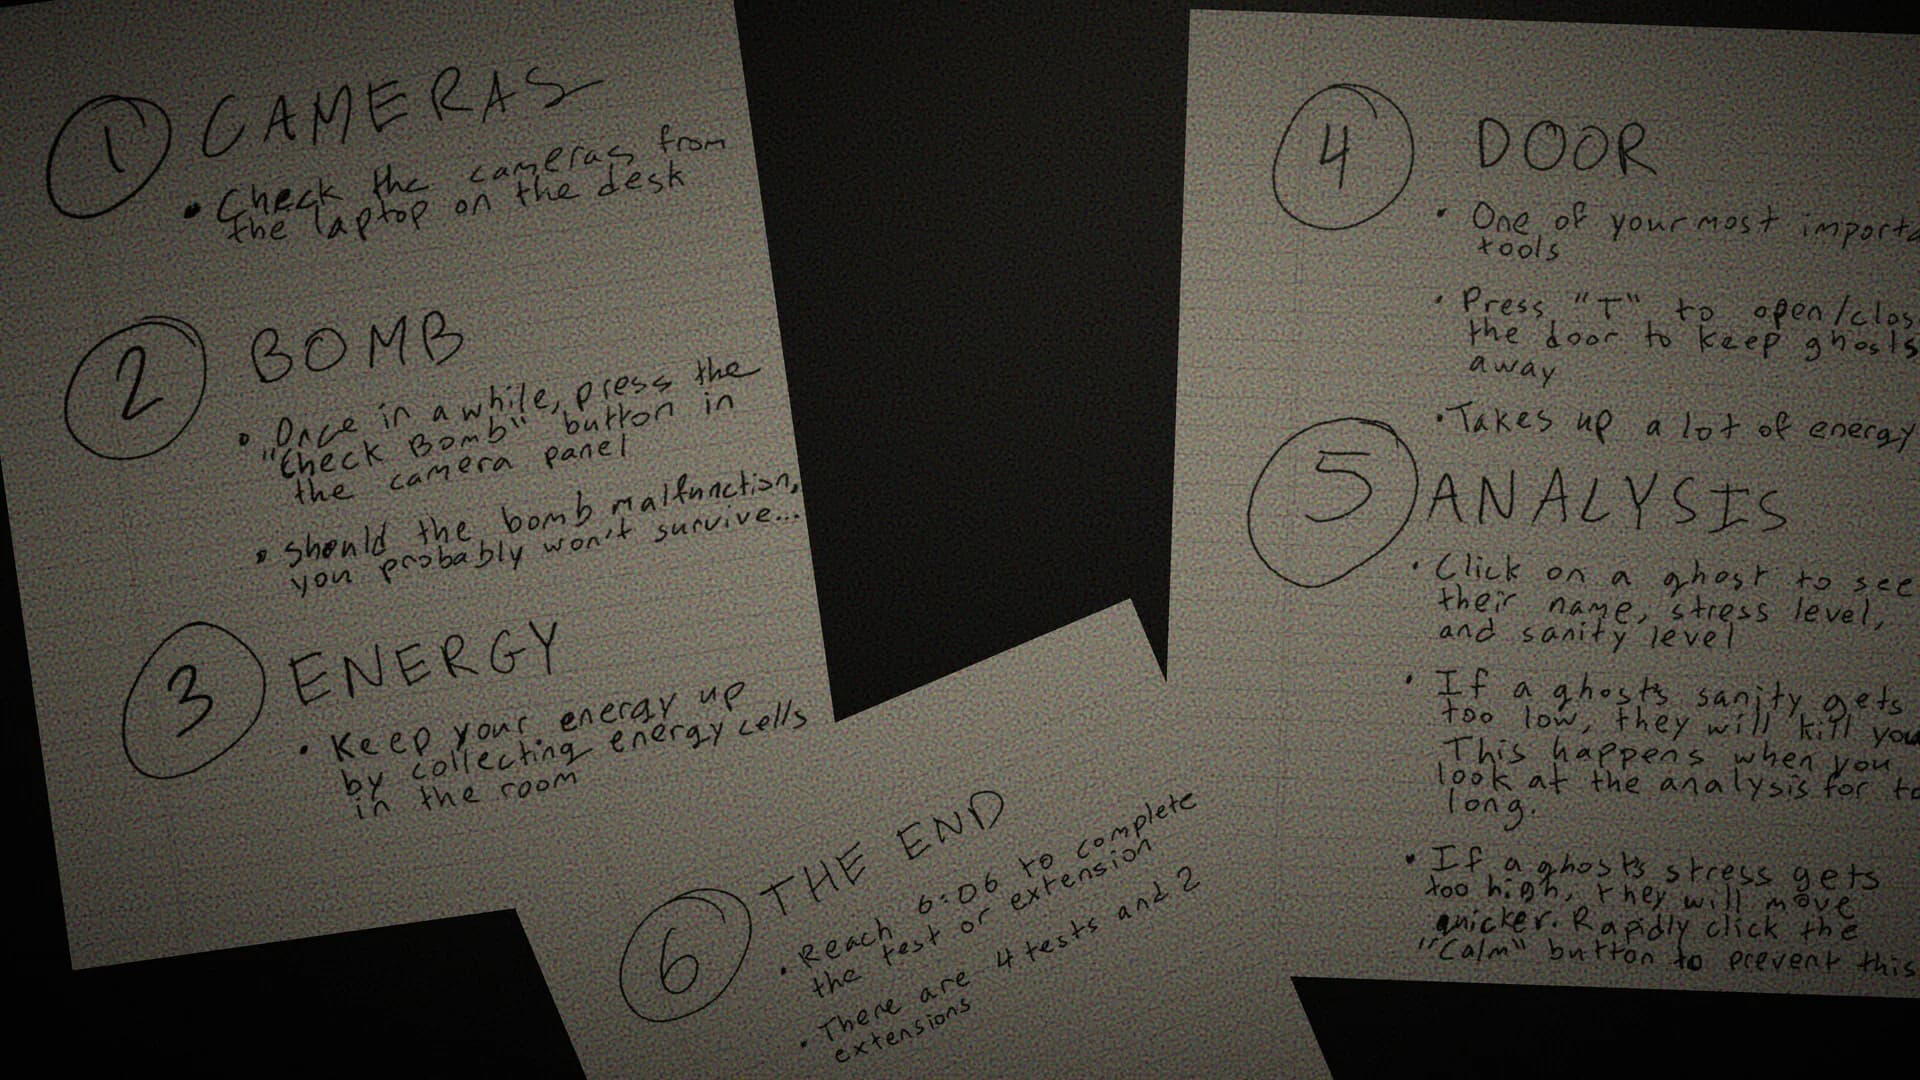 1 CAMERAS
• Check the cameras from
the laptop on the desk
2 BOMB
• Once in a while, press the
"Check Bomb" button in
the camera panel
• Should the bomb malfunction,
you probably won't survive...
3 ENERGY
• Keep your energy up
by collecting energy cells
in the room
4 DOOR
• One of your most importa
tools
• Press "T" to open/clos
the door to keep ghosts
away
• Takes up a lot of energy
5 ANALYSIS
• Click on a ghost to see
their name, stress level,
and sanity level
• If a ghost's sanity gets
too low, they will kill you
This happens when you
look at the analysis for to
long.
• If a ghost's stress gets
too high, they will move
quicker. Rapidly click the
"Calm" button to prevent this
6 THE END
• Reach 6:06 to complete
the test or extension
• There are 4 tests and 2
extensions